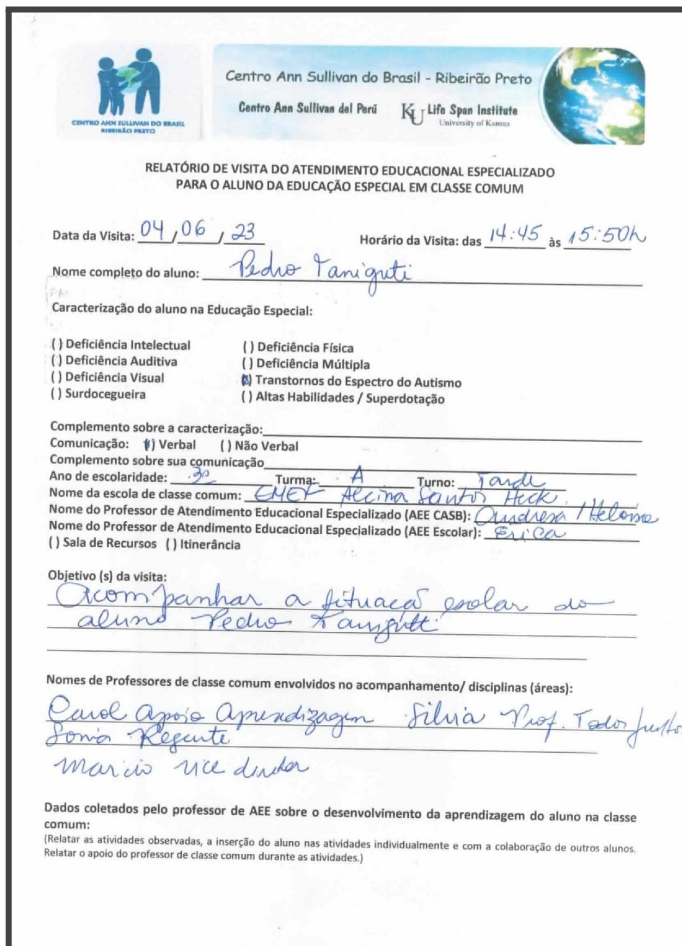 CENTRO ANN SULLIVAN DO BRASIL
RIBEIRÃO PRETO
Centro Ann Sullivan do Brasil - Ribeirão Preto
Centro Ann Sullivan del Perú KU Life Span Institute
University of Kansas
RELATÓRIO DE VISITA DO ATENDIMENTO EDUCACIONAL ESPECIALIZADO
PARA O ALUNO DA EDUCAÇÃO ESPECIAL EM CLASSE COMUM
Data da Visita: 04/06/23 Horário da Visita: das 14:45 às 15:50h
Nome completo do aluno: Pedro Taniguti
Caracterização do aluno na Educação Especial:
( ) Deficiência Intelectual ( ) Deficiência Física
( ) Deficiência Auditiva ( ) Deficiência Múltipla
( ) Deficiência Visual (X) Transtornos do Espectro do Autismo
( ) Surdocegueira ( ) Altas Habilidades / Superdotação
Complemento sobre a caracterização:
Comunicação: (X) Verbal ( ) Não Verbal
Complemento sobre sua comunicação
Ano de escolaridade: 3º Turma: A Turno: Tarde
Nome da escola de classe comum: EMEF Alcina Santos Heck
Nome do Professor de Atendimento Educacional Especializado (AEE CASB): Andresa / Heloise
Nome do Professor de Atendimento Educacional Especializado (AEE Escolar): Erica
( ) Sala de Recursos ( ) Itinerância
Objetivo (s) da visita:
Acompanhar a situaçã escolar do
aluno Pedro Taniguti
Nomes de Professores de classe comum envolvidos no acompanhamento/ disciplinas (áreas):
Carol apoio aprendizagem Silvia Prof. Todos Juntos
Sonia Regente
Marcio vice diretor
Dados coletados pelo professor de AEE sobre o desenvolvimento da aprendizagem do aluno na classe
comum:
(Relatar as atividades observadas, a inserção do aluno nas atividades individualmente e com a colaboração de outros alunos.
Relatar o apoio do professor de classe comum durante as atividades.)